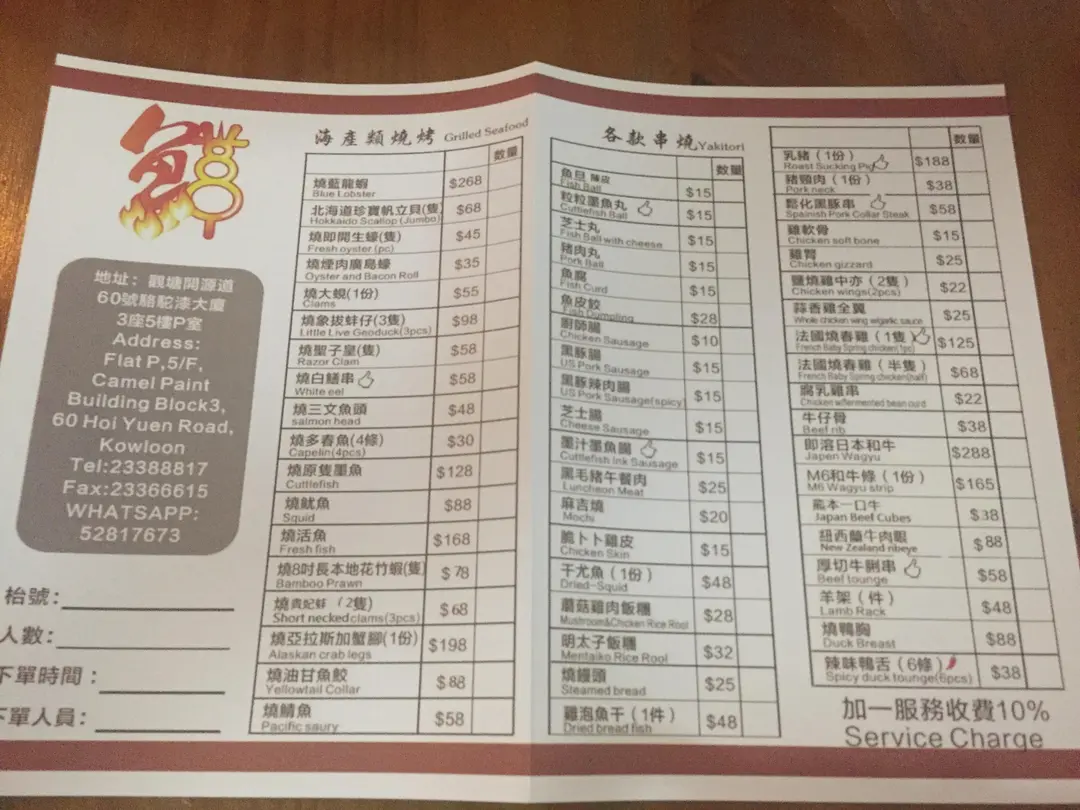 鱻
地址：觀塘開源道
60號駱駝漆大廈
3座5樓P室
Address:
Flat P,5/F,
Camel Paint
Building Block3,
60 Hoi Yuen Road,
Kowloon
Tel:23388817
Fax:23366615
WHATSAPP:
52817673
枱號：
人數：
下單時間：
下單人員：
海產類燒烤 Grilled Seafood
數量
燒藍龍蝦 $268
Blue Lobster
北海道珍寶帆立貝(隻) $68
Hokkaido Scallop (Jumbo)
燒即開生蠔(隻) $45
Fresh oyster (pc)
燒煙肉廣島蠔 $35
Oyster and Bacon Roll
燒大蜆(1份) $55
Clams
燒象拔蚌仔(3隻) $98
Little Live Geoduck(3pcs)
燒聖子皇(隻) $58
Razor Clam
燒白鱔串 $58
White eel
燒三文魚頭 $48
salmon head
燒多春魚(4條) $30
Capelin(4pcs)
燒原隻墨魚 $128
Cuttlefish
燒魷魚 $88
Squid
燒活魚 $168
Fresh fish
燒8吋長本地花竹蝦(隻) $78
Bamboo Prawn
燒貴妃蚌（2隻) $68
Short necked clams(3pcs)
燒亞拉斯加蟹腳(1份) $198
Alaskan crab legs
燒油甘魚鮫 $88
Yellowtail Collar
燒鯖魚 $58
Pacific saury
各款串燒 Yakitori
數量
魚旦 陳皮 $15
Fish Ball
粒粒墨魚丸 $15
Cuttlefish Ball
芝士丸 $15
Fish Ball with cheese
豬肉丸 $15
Pork Ball
魚腐 $15
Fish Curd
魚皮餃 $28
Fish Dumpling
廚師腸 $10
Chicken Sausage
黑豚腸 $15
US Pork Sausage
黑豚辣肉腸 $15
US Pork Sausage(spicy)
芝士腸 $15
Cheese Sausage
墨汁墨魚腸 $15
Cuttlefish Ink Sausage
黑毛豬午餐肉 $25
Luncheon Meat
麻吉燒 $20
Mochi
脆卜卜雞皮 $15
Chicken Skin
干尤魚（1份） $48
Dried-Squid
蘑菇雞肉飯糰 $28
Mushroom&Chicken Rice Rool
明太子飯糰 $32
Mentaiko Rice Rool
燒饅頭 $25
Steamed bread
雞泡魚干（1件） $48
Dried bread fish
數量
乳豬（1份） $188
Roast Sucking Pig
豬頸肉（1份） $38
Pork neck
鬆化黑豚串 $58
Spainish Pork Collar Steak
雞軟骨 $15
Chicken soft bone
雞腎 $25
Chicken gizzard
鹽燒雞中亦（2隻） $22
Chicken wings(2pcs)
蒜香雞全翼 $25
Whole chicken wing w/garlic sauce
法國燒春雞（1隻） $125
French Baby Spring chicken(1pc)
法國燒春雞（半隻） $68
French Baby Spring chicken(half)
腐乳雞串 $22
Chicken w/fermented bean curd
牛仔骨 $38
Beef rib
即溶日本和牛 $288
Japen Wagyu
M6和牛條（1份） $165
M6 Wagyu strip
熊本一口牛 $38
Japan Beef Cubes
紐西蘭牛肉眼 $88
New Zealand ribeye
厚切牛脷串 $58
Beef tounge
羊架（件） $48
Lamb Rack
燒鴨胸 $88
Duck Breast
辣味鴨舌（6條） $38
Spicy duck tounge(6pcs)
加一服務收費10%
Service Charge